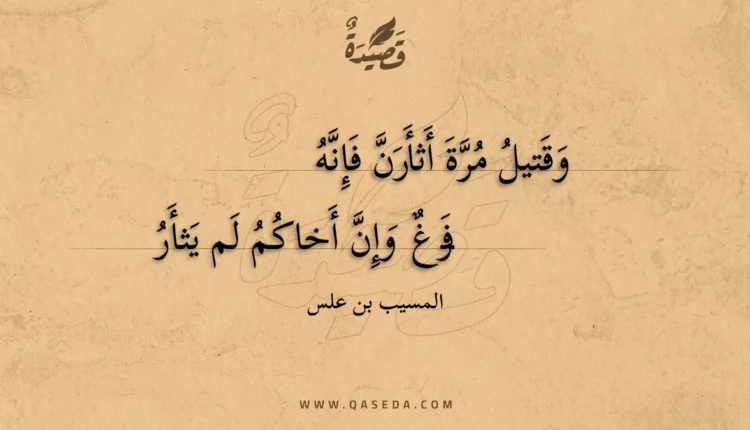 قَصِيدَةٌ
وَقَتيلُ مُرَّةَ أَثأَرَنَّ فَإِنَّهُ
فَرغٌ وَإِنَّ أَخاكُمُ لَم يَثأَرُ
المسيب بن علس
WWW.QASEDA.COM